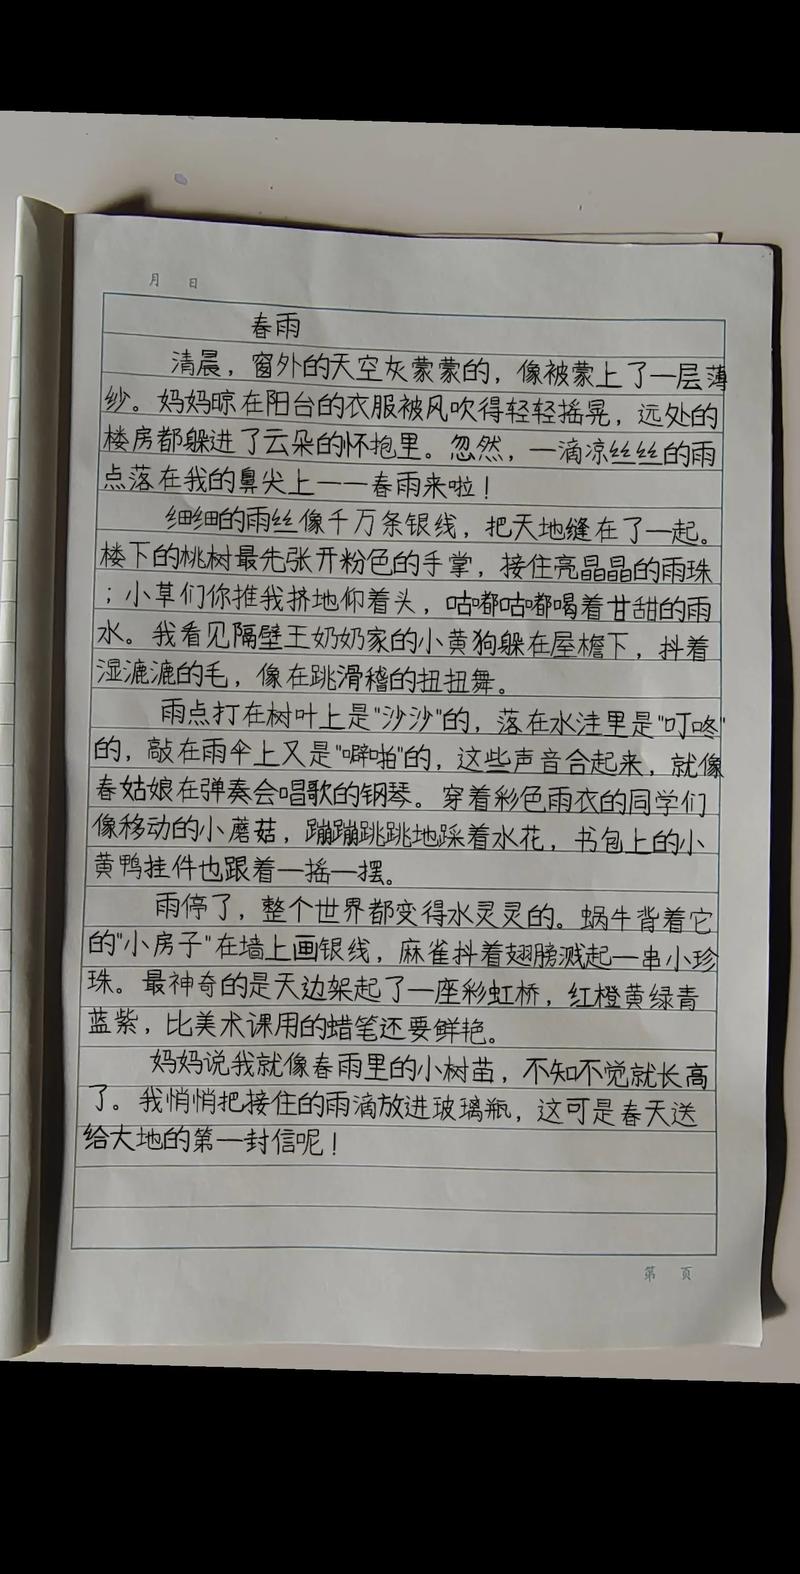 月 日
春雨
清晨，窗外的天空灰蒙蒙的，像被蒙上了一层薄
纱。妈妈晾在阳台的衣服被风吹得轻轻摇晃，远处的
楼房都躲进了云朵的怀抱里。忽然，一滴凉丝丝的雨
点落在我的鼻尖上——春雨来啦！
细细的雨丝像千万条银线，把天地缝在了一起。
楼下的桃树最先张开粉色的手掌，接住亮晶晶的雨珠
；小草们你推我挤地仰着头，咕嘟咕嘟喝着甘甜的雨
水。我看见隔壁王奶奶家的小黄狗躲在屋檐下，抖着
湿漉漉的毛，像在跳滑稽的扭扭舞。
雨点打在树叶上是"沙沙"的，落在水洼里是"叮咚"
的，敲在雨伞上又是"噼啪"的，这些声音合起来，就像
春姑娘在弹奏会唱歌的钢琴。穿着彩色雨衣的同学们
像移动的小蘑菇，蹦蹦跳跳地踩着水花，书包上的小
黄鸭挂件也跟着一摇一摆。
雨停了，整个世界都变得水灵灵的。蜗牛背着它
的"小房子"在墙上画银线，麻雀抖着翅膀溅起一串小珍
珠。最神奇的是天边架起了一座彩虹桥，红橙黄绿青
蓝紫，比美术课用的蜡笔还要鲜艳。
妈妈说我就像春雨里的小树苗，不知不觉就长高
了。我悄悄把接住的雨滴放进玻璃瓶，这可是春天送
给大地的第一封信呢！
第 页